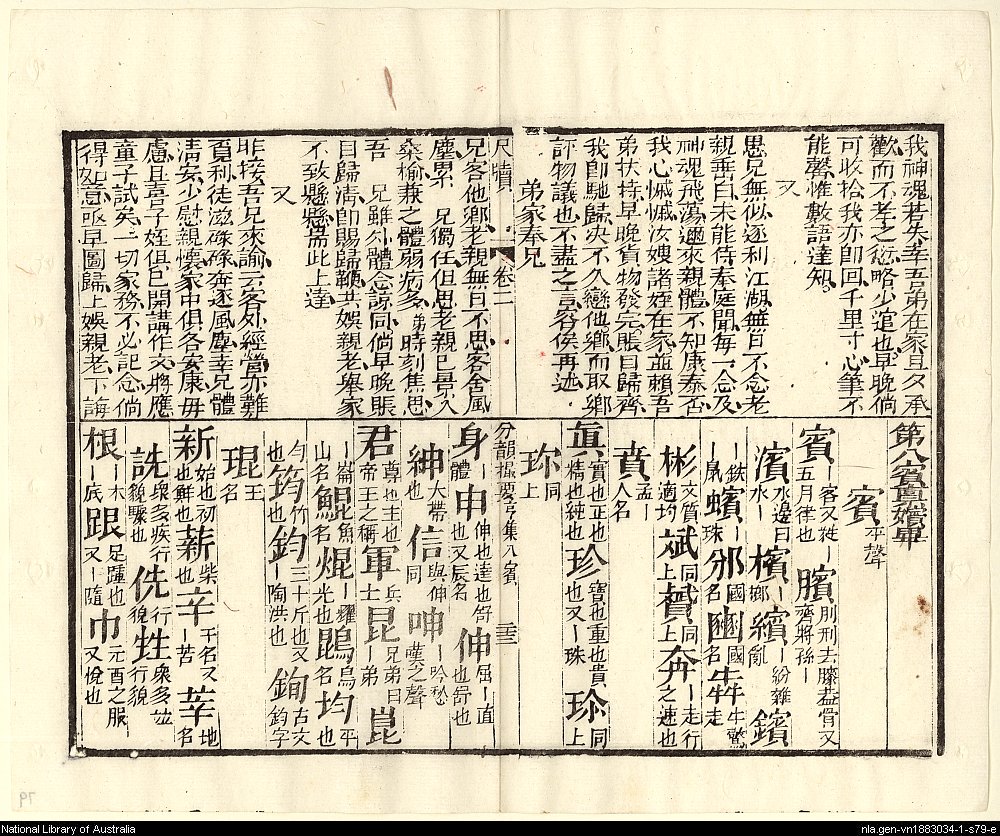 我神魂若失幸吾弟在家且夕承
歡而不孝之愆略少逭也早晚倘
可收拾我亦即回千里寸心筆不
能罄惟數語達知
又
思兄無似逐利江湖無日不念老
親垂白未能侍奉庭闈每一念及
神魂飛蕩邇來親體不知康泰否
我心慽慽汝嫂諸姪在家並賴吾
弟扶持早晚貨物發完賬目歸齊
我即馳歸決不久戀他鄉而取鄉
評物議也不盡之言容俟再述
弟家奉兄
尺牘 卷二
兄客他鄉老親無日不思客舍風
塵累 兄獨任但思老親已景入
桑榆兼之體弱病多弟時刻焦思
吾 兄雖外體念諒同倘早晚賬
目歸清即賜歸鞭共娛親老舉家
不致懸懸耑此上達
又
昨接吾兄來諭云客外經營亦難
覓利徒滋碌碌奔逐風塵幸兄體
清安少慰親懷家中俱各安康毋
慮且喜子姪俱已開講作文將應
童子試矣一切家務不必記念倘
得如意亟早圖歸上娛親老下誨
第八賓嬪儐畢
賓平聲
賓｜客又蕤｜五月律也 臏刖刑去膝蓋骨又齊將孫｜
濱水邊曰水｜ 檳｜鄉 繽｜紛雜亂 鑌
｜鉄 蠙｜珠 邠國名 豳國名 犇牛驚走
彬文質適均 斌同上 贇同上 奔｜走行之速也
賁孟｜人名
眞實也正也精也純也 珍寶也重也貴也又｜珠 珎同上
珎同上
分韻撮要字集 八賓 三三
身｜體 申伸也達也舒也又辰名 伸屈｜直也舒也
紳大帶也 信與伸同 呻｜吟愁嘆之聲
君尊也主也帝王之稱 軍兵士 昆兄弟曰｜弟 崑
｜崙山名 鯤魚名 焜｜耀光也 鵾鳥名 均平也
勻也 筠竹｜ 鈞三十斤也又｜陶洪也 銁古文鈞字
琨王名
新始也初也鮮也 薪柴也 辛干名又｜苦 莘地名
詵衆多疾行貌驟也 侁行貌 甡衆多並行貌
根｜木｜底 跟足踵也又｜隨 巾元酉之服又佼也
National Library of Australia
nla.gen-vn1883034-1-s79-e